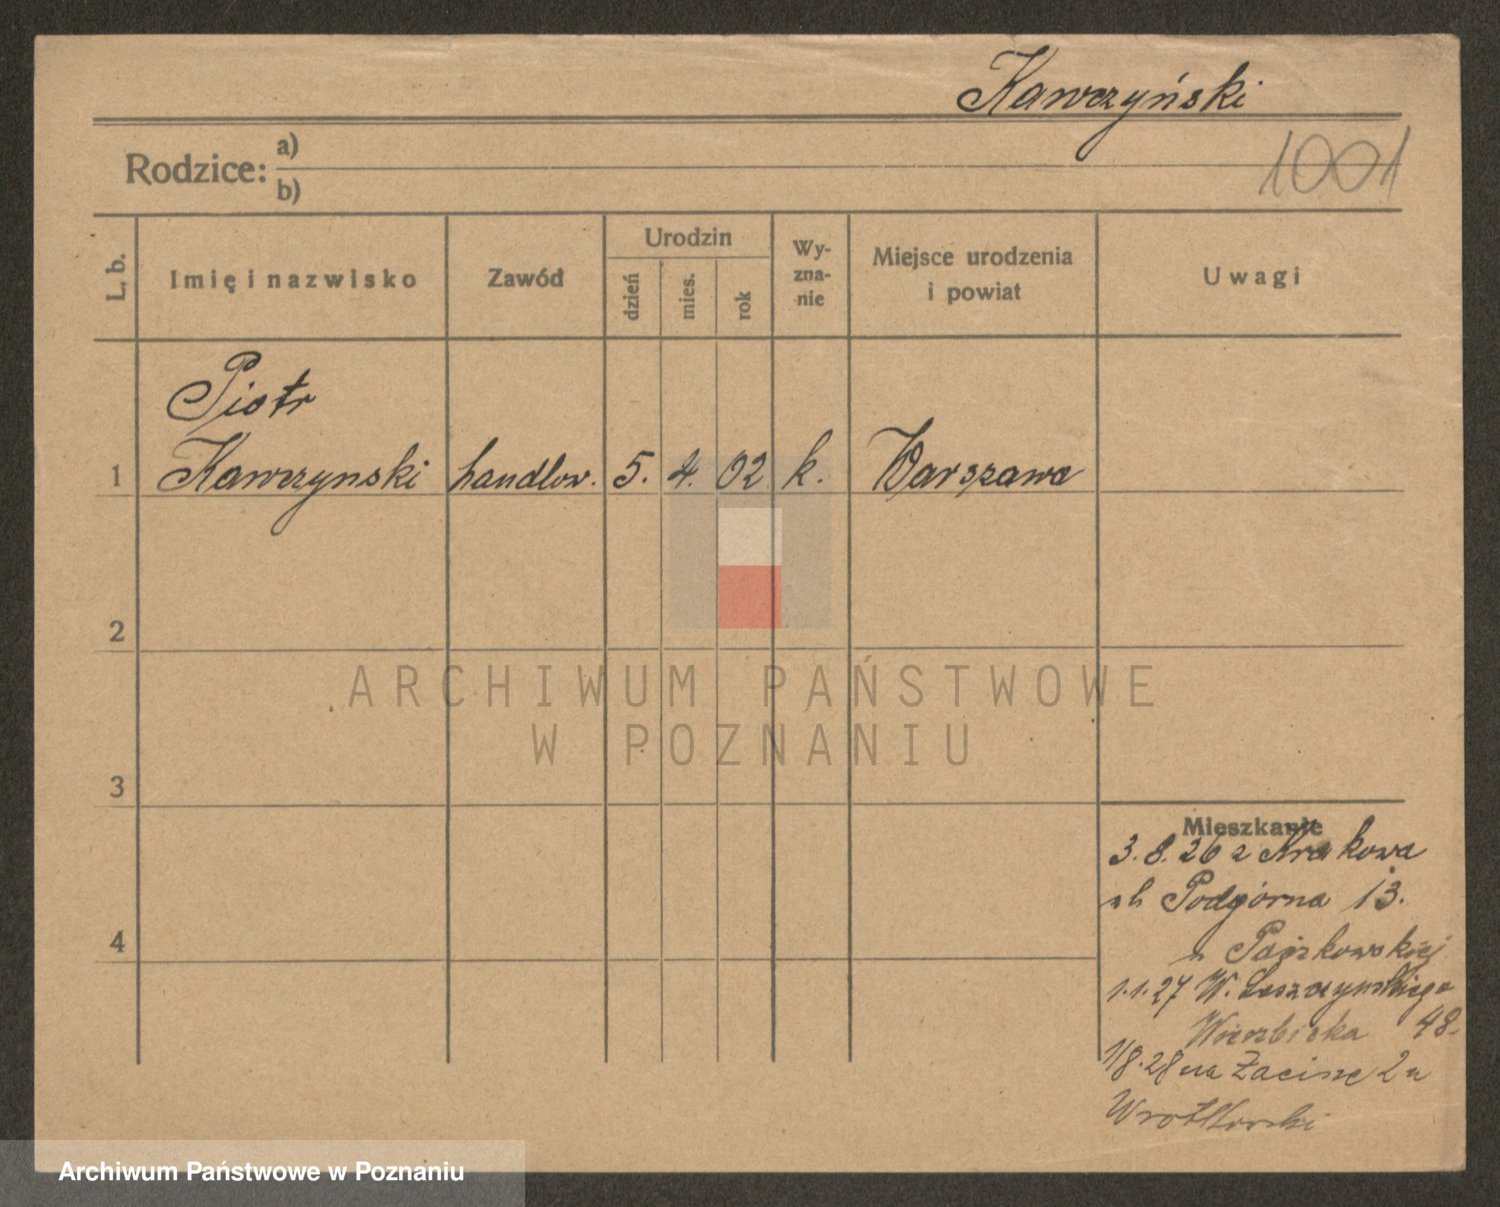 Kawczyński
1001
Rodzice: a)
b)
L. b.
Imię i nazwisko
Zawód
Urodzin
dzień
mies.
rok
Wy-
zna-
nie
Miejsce urodzenia
i powiat
Uwagi
Piotr
1 Kawczynski handlow. 5. 4. 02 k. Warszawa
2
3
4
ARCHIWUM PAŃSTWOWE
W POZNANIU
Mieszkanie
3.8.26 z Krakowa
Podgórna 13.
u
1.1.27 W. Leszczyńskiego
48.
1/8.28 na Zacisze 2 u
Archiwum Państwowe w Poznaniu